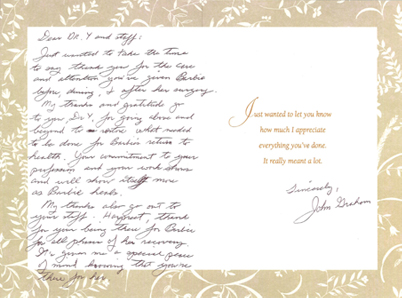 Dear DR. Y and staff:
Just wanted to take the time
to say thank you for the care
and attention you've given Barbie
before, during, & after her surgery.
My thanks and gratitude go
to you, Dr. Y, for going above and
beyond to what needed
to be done for Barbie's return to
health. Your commitment to your
profession and your work shows
and will show itself more
as Barbie heals.
My thanks also go out to
your staff. Harpreet, thank
for you being there for Barbie
for all phases of her recovery.
It's given me a special peace
of mind knowing that you're
there for her
Just wanted to let you know
how much I appreciate
everything you've done.
It really meant a lot.
Sincerely,
John Graham